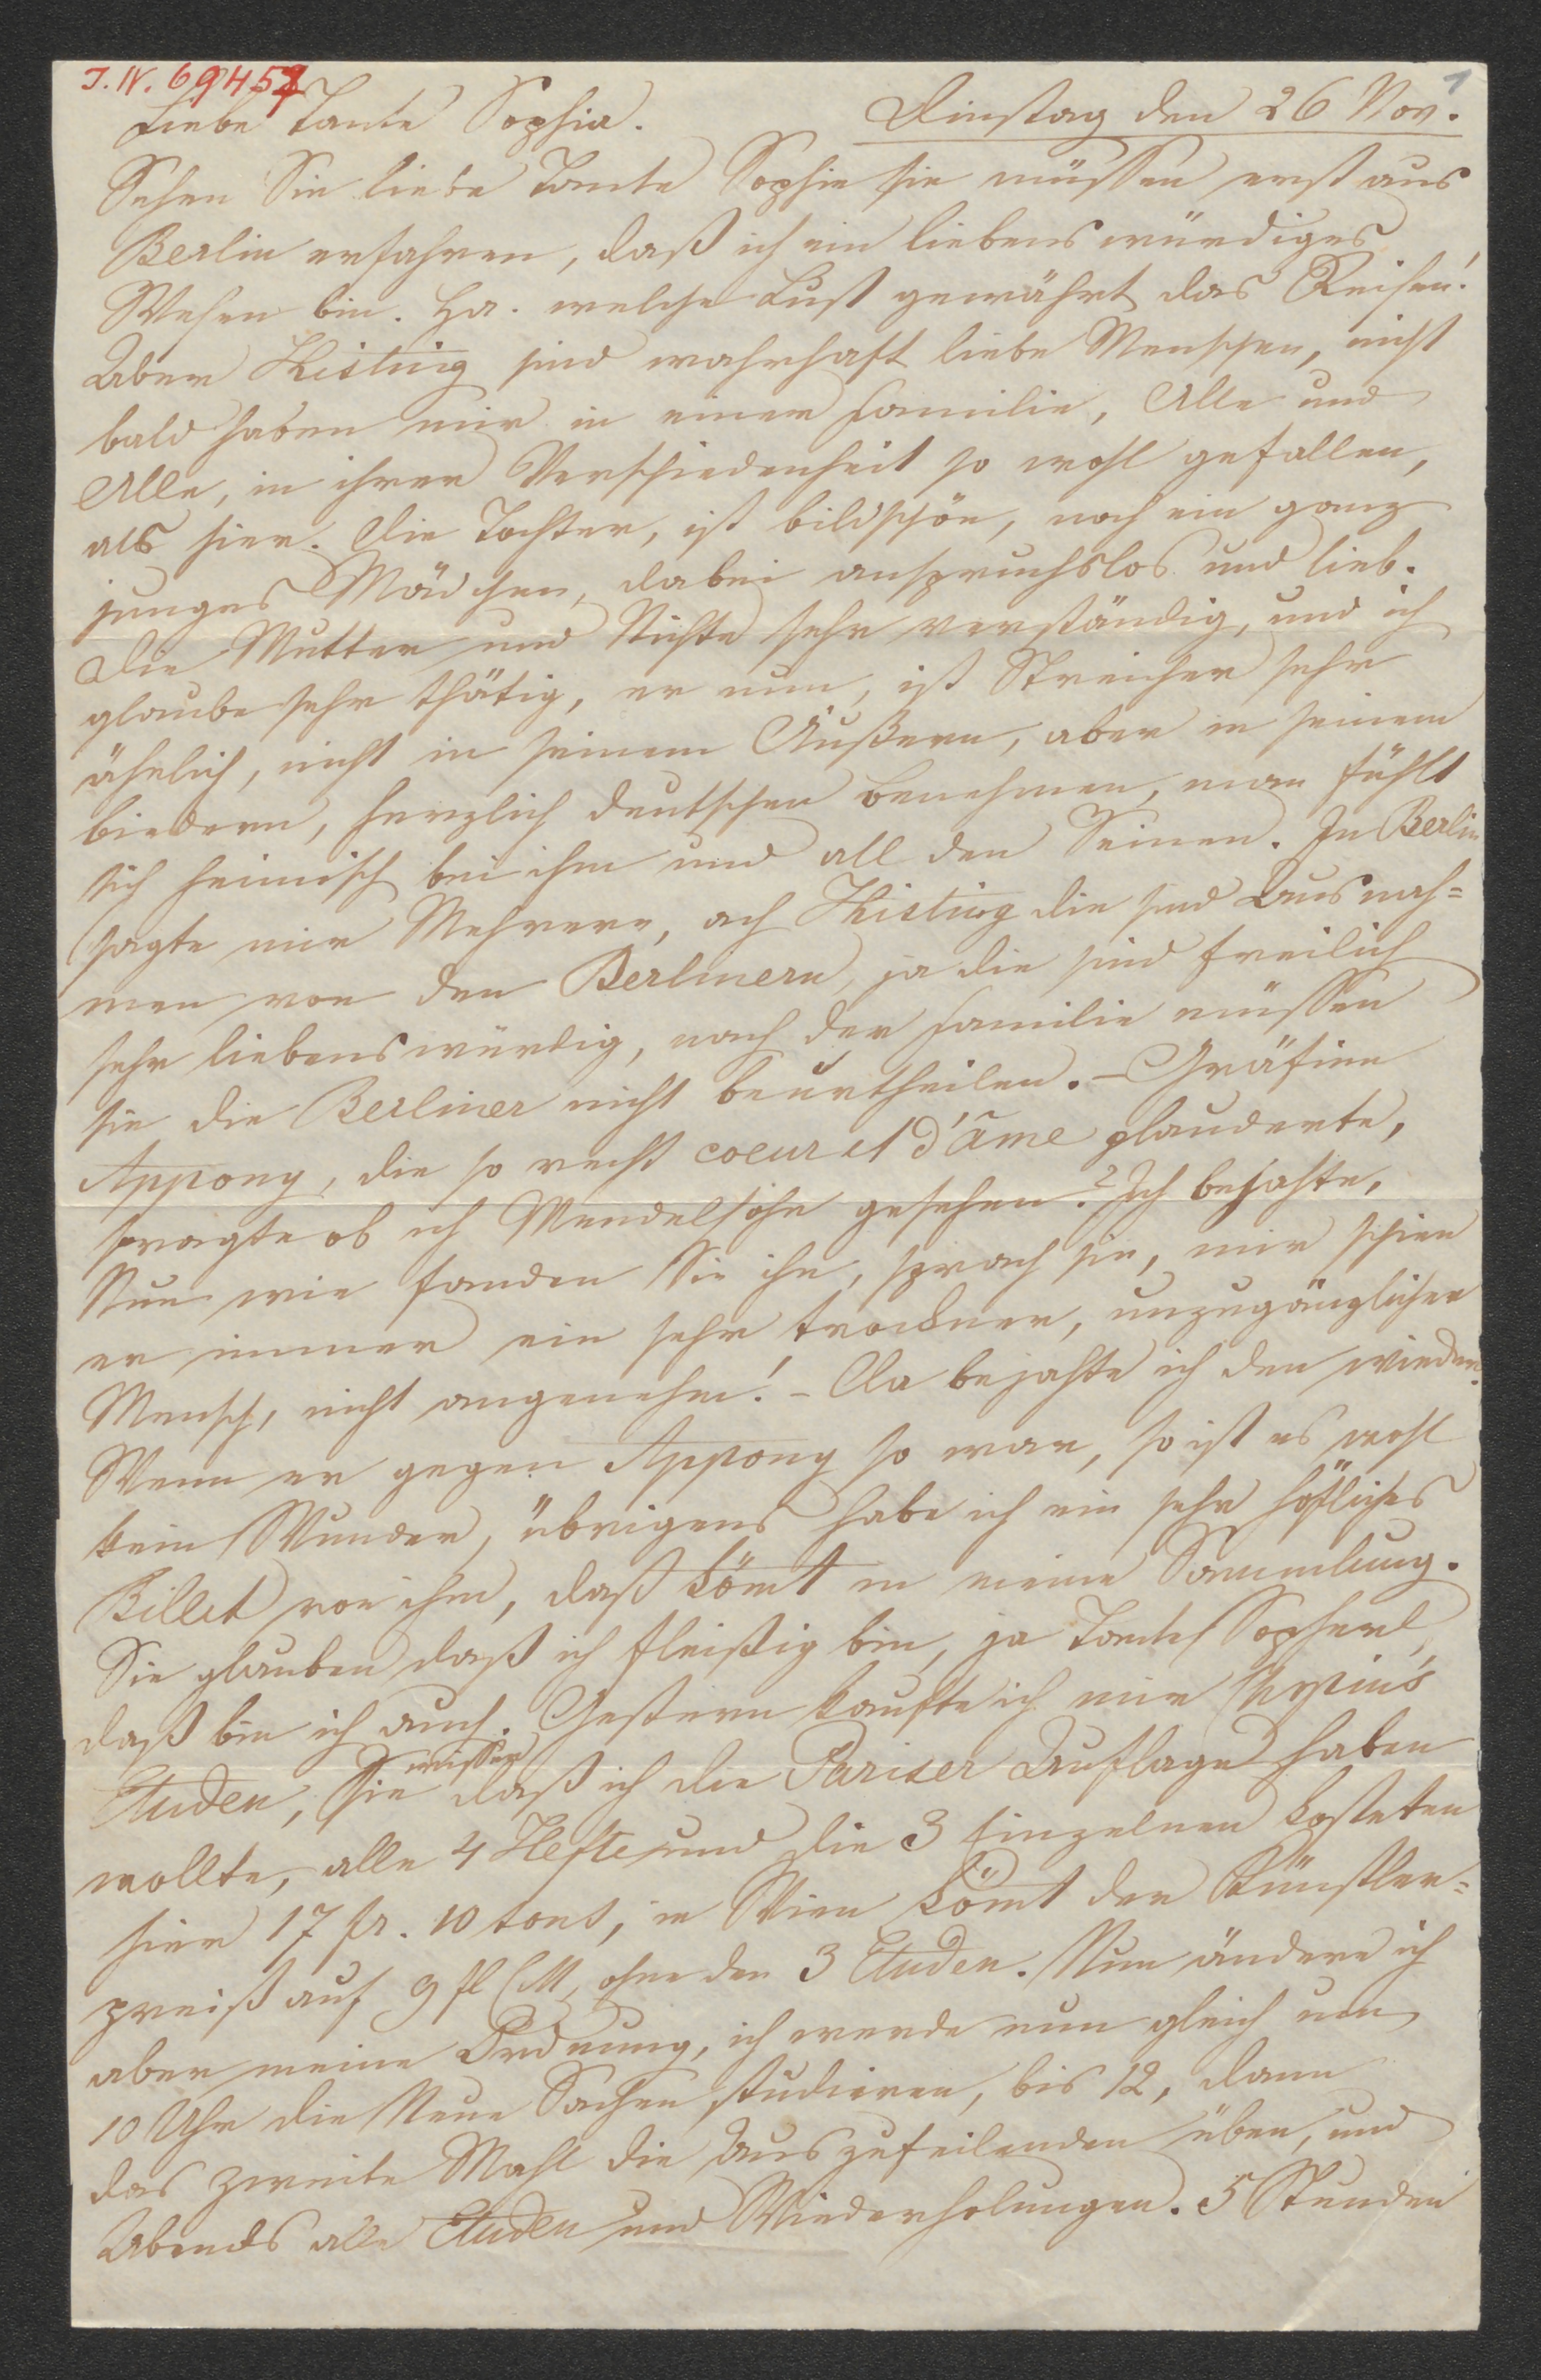 J.N. 69457
1
Liebe Tante Sophia. Dinstag den 26 Nov.
Sehen Sie liebe Tante Sophie sie müssen erst aus
Berlin erfahren, daß ich ein liebenswürdiges
Wesen bin. Ha. welche Lust gewährt das Reisen!
Aber Kisting sind wahrhaft liebe Menschen, nicht
bald haben mir in einer Familie, Alle und
Alle, in ihrer Verschiedenheit so wohl gefallen,
als hier. Die Tochter, ist bildschön, noch ein ganz
junges Mädchen, dabei anspruchslos und lieb.
Die Mutter und Nichte sehr verständig, und ich
glaube sehr thätig, er nun, ist Streicher sehr
ähnlich, nicht in seinem Äußern, aber in seinem
biedern, herzlich deutschen Benehmen, man fühlt
sich heimisch bei ihm und all den Seinen. In Berlin
sagte mir Mehrere, ach Kisting die sind Ausnah=
men von den Berlinern, ja die sind freilich
sehr liebenswürdig, nach der Familie müssen
sie die Berliner nicht beurtheilen. – Gräfinn
Appony, die so recht coeur et d'âme plauderte,
fragte ob ich Mendelsohn gesehen? Ich bejahte,
Nun wie fanden Sie ihn, sprach sie, mir schien
er immer ein sehr trockner, unzugänglicher
Mensch, nicht angenehm! – Da bejahte ich den wieder.
Wenn er gegen Appony so war, so ist es wohl
kein Wunder, übrigens habe ich ein sehr höfliches
Billet von ihm, daß kömt in meine Sammlung.
Sie glauben daß ich fleißig bin, ja Tante Sopherl,
daß bin ich auch. Gestern kaufte ich mir Chopin's
Etuden, Sie wissen daß ich die Pariser Auflage haben
wollte, alle 4 Hefte und die 3 Einzelnen kosteten
hier 17 fr. 10 sous, in Wien kömt der Künstler=
preiß auf 9 fl CM, ohne den 3 Etuden. Nun ändere ich
aber meine Ordnung, ich werde nun gleich um
10 Uhr die Neue Sachen studieren, bis 12, dann
das zweite Mahl die Auszufeilenden üben, und
Abends alle Etuden und Wiederholungen. 5 Stunden